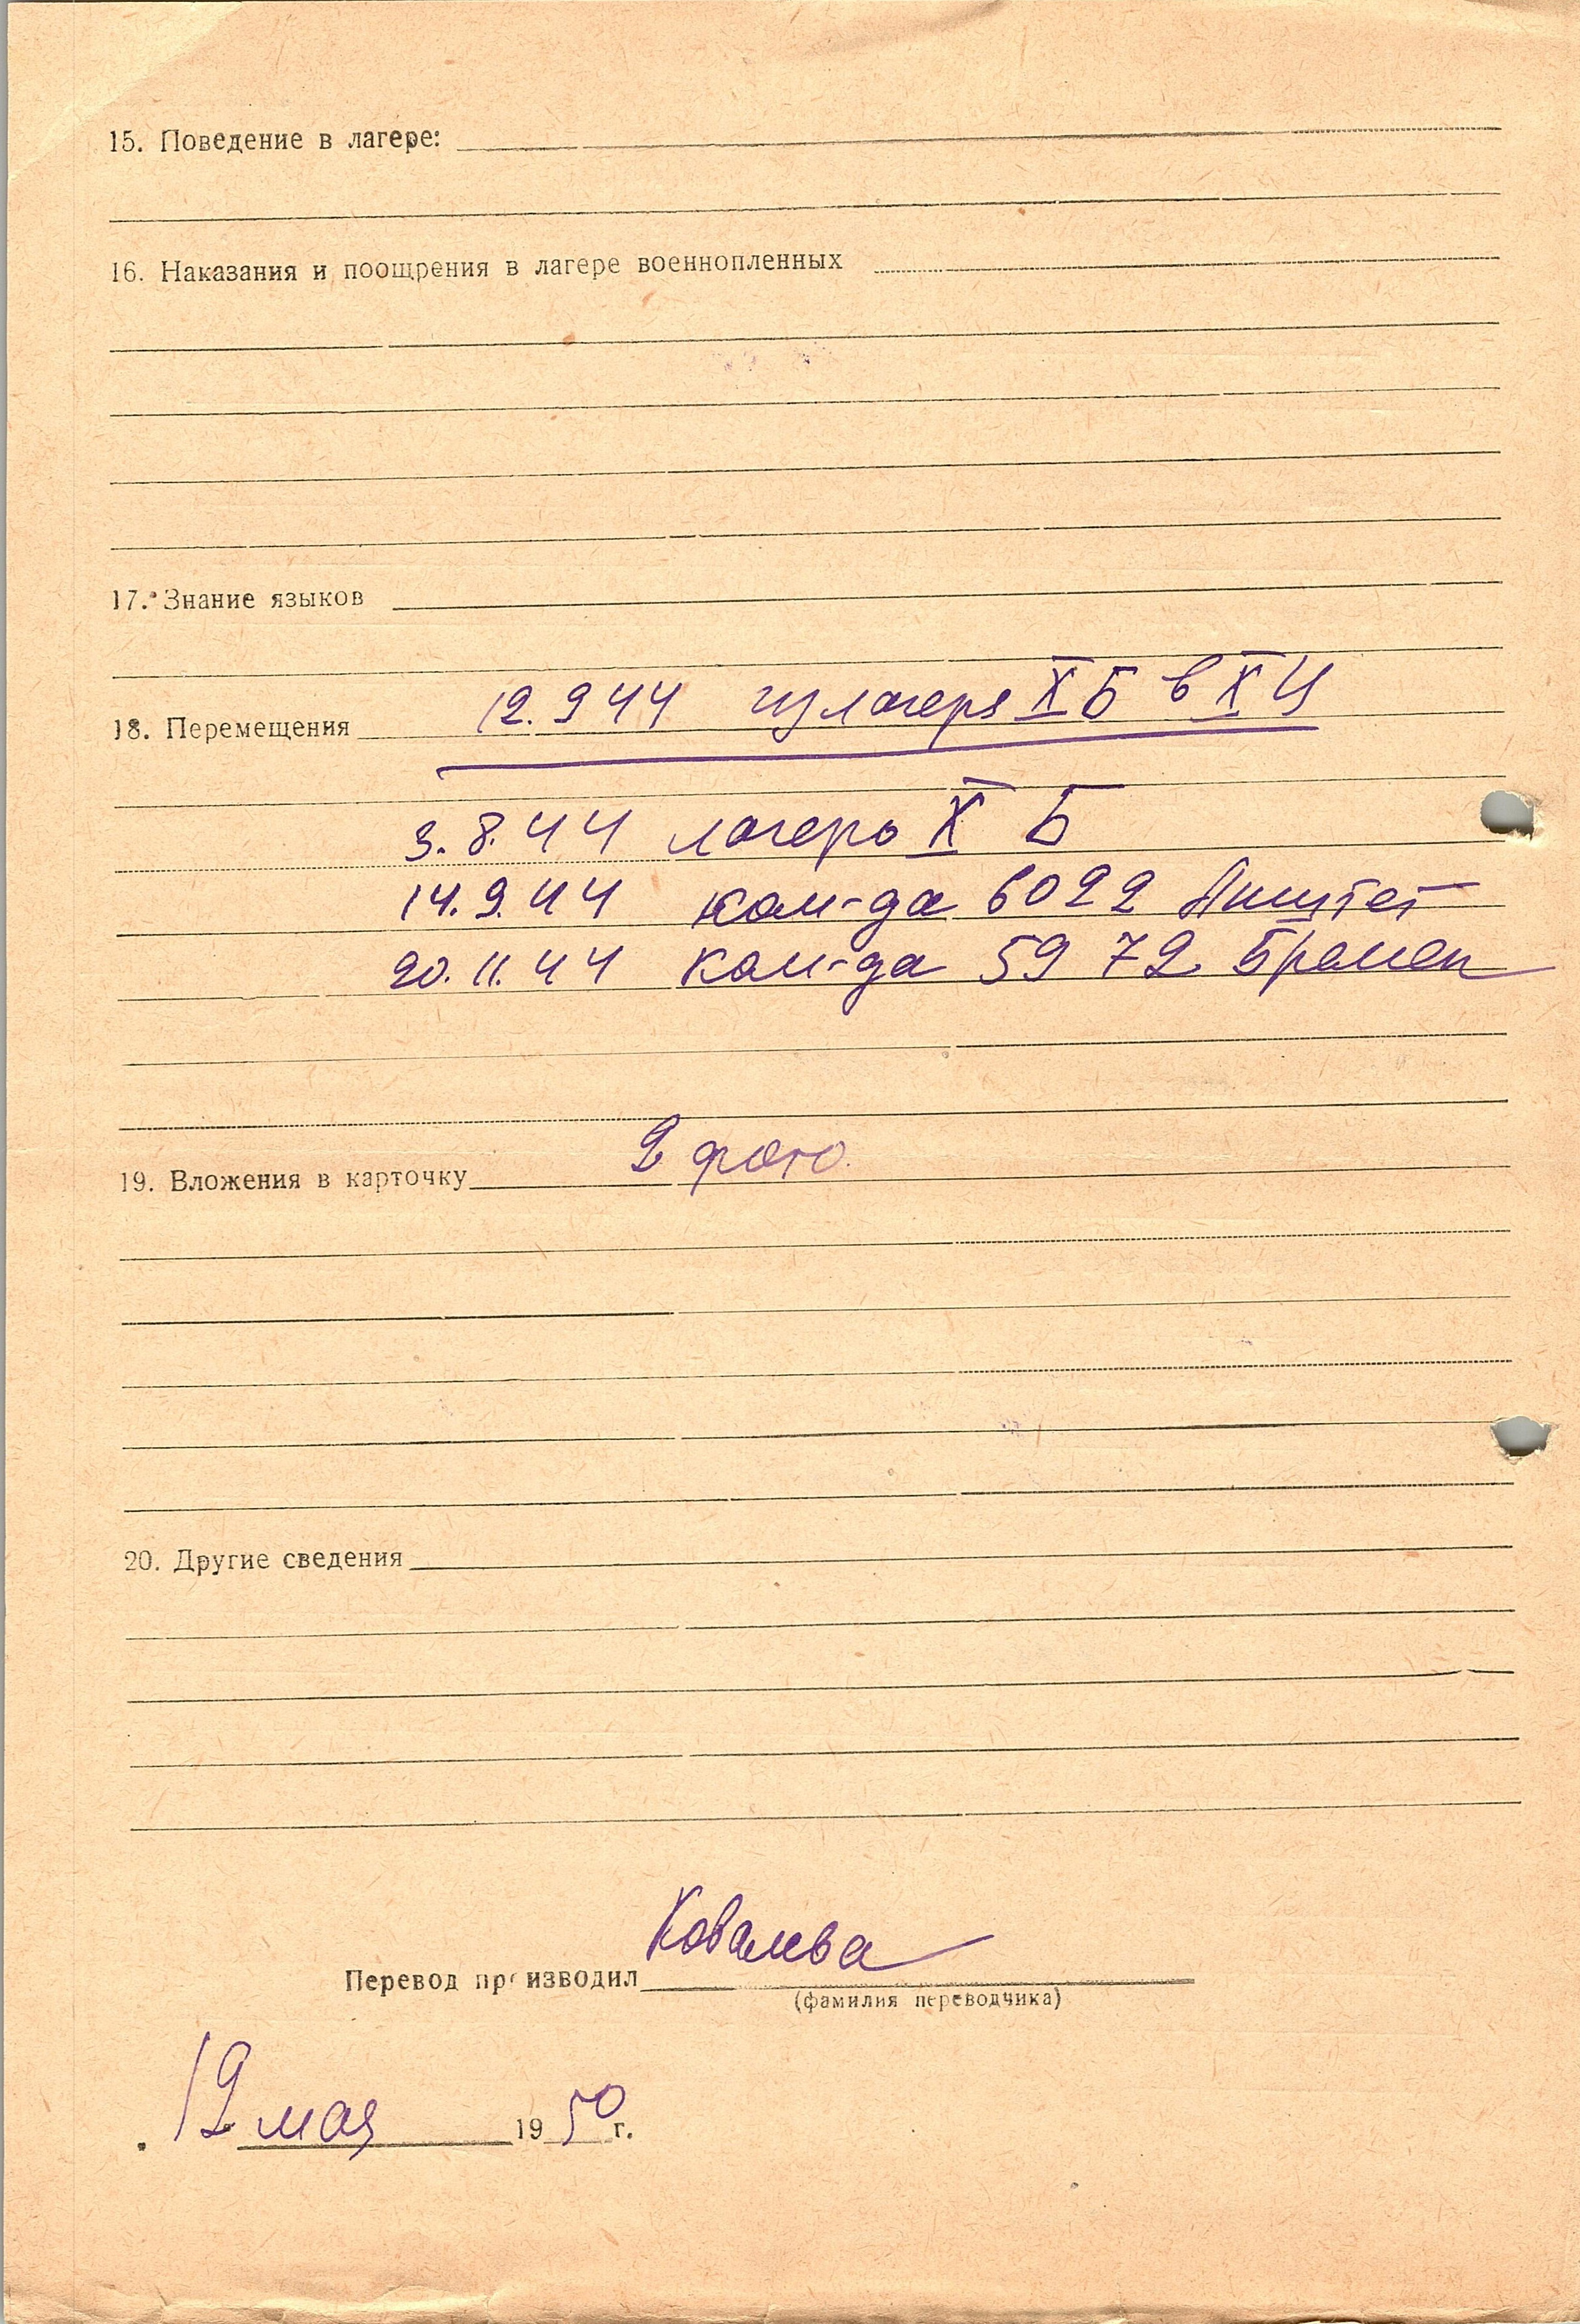 15. Поведение в лагере:
16. Наказания и поощрения в лагере военнопленных
17. Знание языков
18. Перемещения 12.9 44 из лагеря X Б в X Ц
3.8.44 лагерь X Б
14.9.44 ком-да 6022
20.11.44 ком-да 5972 Бремен
19. Вложения в карточку 2 фото.
20. Другие сведения
Ковалева
Перевод производил
(фамилия переводчика)
12 мая 1950 г.